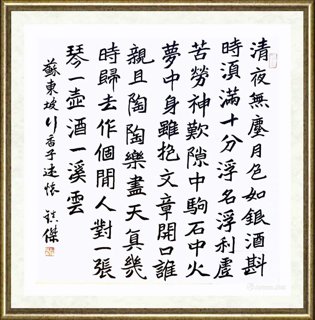 清夜無塵月色如銀酒斟
時須滿十分浮名浮利虛
苦勞神歎隙中駒石中火
夢中身雖抱文章開口誰
親且陶陶樂盡天真幾
時歸去作個閒人對一張
琴一壺酒一溪雲
蘇東坡行香子述懷 傑